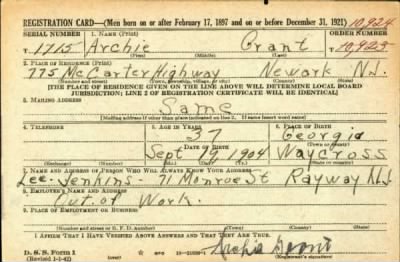 REGISTRATION CARD—(Men born on or after February 17, 1897 and on or before December 31, 1921) 10,924
SERIAL NUMBER 1. NAME (Print) ORDER NUMBER
T 1715 Archie Grant T 10,925
(First) (Middle) (Last)
2. PLACE OF RESIDENCE (Print)
775 McCarter Highway Newark N.J.
(Number and street) (Town, township, village, or city) (County) (State)
[THE PLACE OF RESIDENCE GIVEN ON THE LINE ABOVE WILL DETERMINE LOCAL BOARD
JURISDICTION; LINE 2 OF REGISTRATION CERTIFICATE WILL BE IDENTICAL]
3. MAILING ADDRESS
Same
[Mailing address if other than place indicated on line 2. If same insert word same]
4. TELEPHONE 5. AGE IN YEARS 6. PLACE OF BIRTH
37 Georgia
DATE OF BIRTH (Town or county)
Sept 19, 1904 Waycross
(Exchange) (Number) (Mo.) (Day) (Yr.) (State or country)
7. NAME AND ADDRESS OF PERSON WHO WILL ALWAYS KNOW YOUR ADDRESS
Lee. Jenkins - 71 Monroe St Rayway N.J.
8. EMPLOYER'S NAME AND ADDRESS
Out of Work.
9. PLACE OF EMPLOYMENT OR BUSINESS
(Number and street or R. F. D. number) (Town) (County) (State)
I AFFIRM THAT I HAVE VERIFIED ABOVE ANSWERS AND THAT THEY ARE TRUE.
D. S. S. Form 1
(Revised 1-1-42) (Registrant's signature)